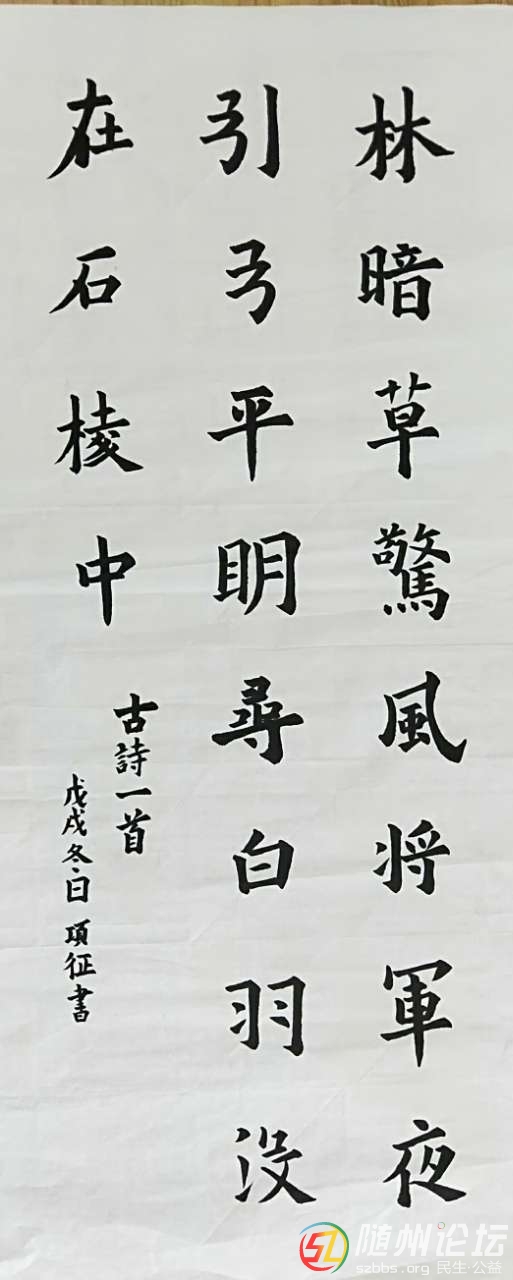 林暗草驚風将軍夜
引弓平明尋白羽没
在石棱中
古詩一首
戊戌冬日 項征書
随州论坛
szbbs.org 民生·公益